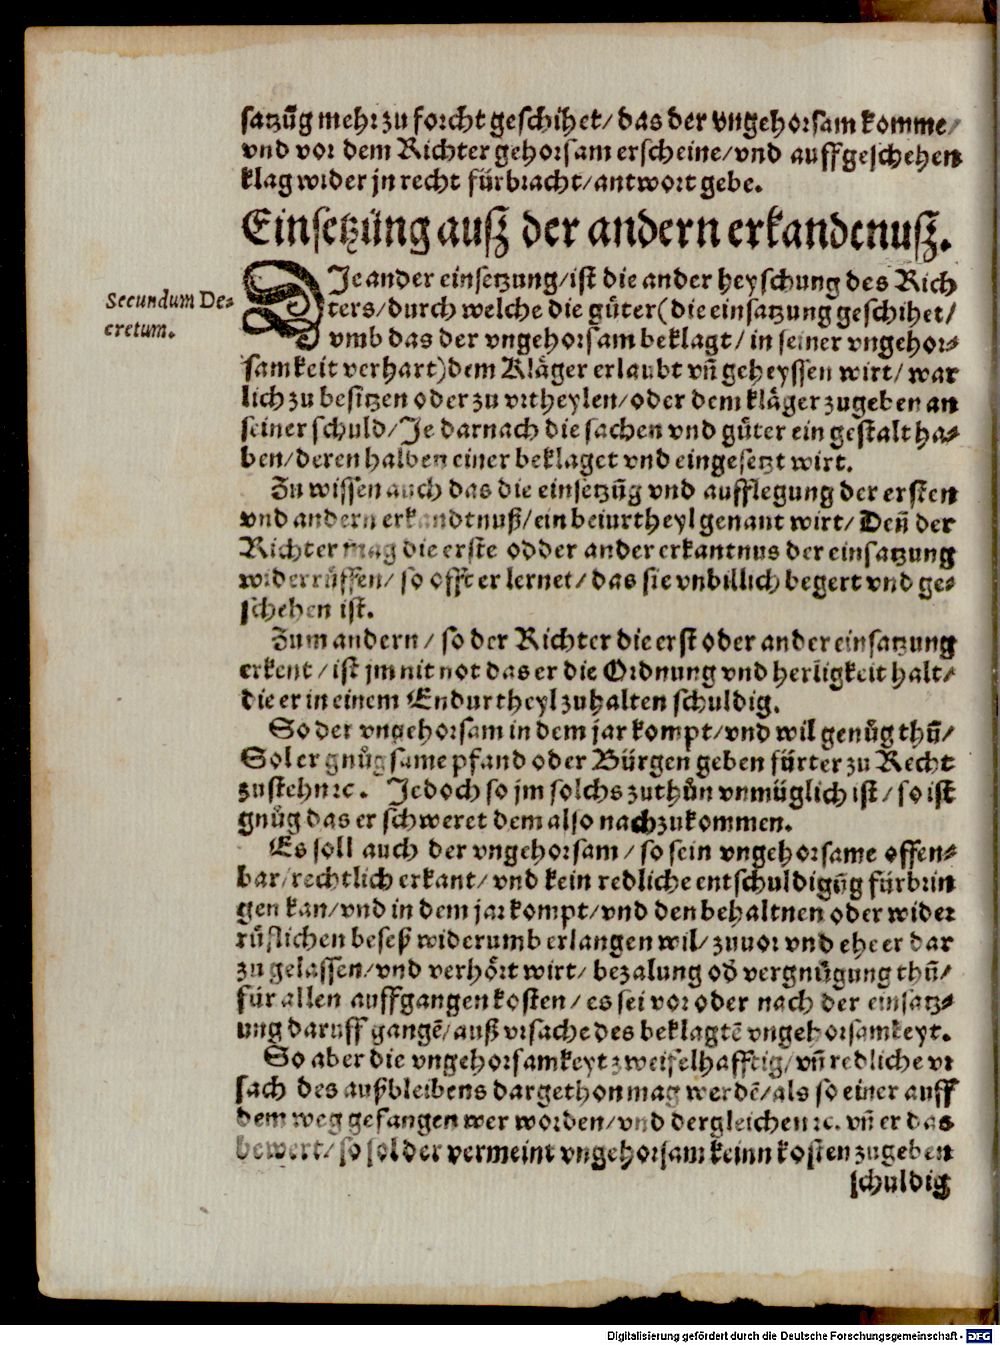 satzūg mehr zu forcht geschihet/ das der vngehorsam komme/
vnd vor dem Richter gehorsam erscheine/ vnd auffgeschehen
klag wider jn recht fürbracht/ antwort gebe.
Einsetzüng ausz der andern erkandenusz.
Secundum De-
cretum.
DJe ander einsetzung/ ist die ander heyschung des Rich
ters/ durch welche die güter (die einsatzung geschihet/
vmb das der vngehorsam beklagt/ in seiner vngehor-
samkeit verhart) dem Kläger erlaubt vñ geheyssen wirt/ war
lich zu besitzen oder zu vrtheylen/ oder dem kläger zugeben an
seiner schuld/ Je darnach die sachen vnd güter ein gestalt ha-
ben/ deren halben einer beklaget vnd eingesetzt wirt.
Zu wissen auch das die einsetzūg vnd aufflegung der ersten
vnd andern erkandtnuß/ ein beiurtheyl genant wirt/ Deñ der
Richter mag die erste odder ander erkantnus der einsatzung
widerrůffen/ so offt er lernet/ das sie vnbillich begert vnd ge-
schehen ist.
Zum andern/ so der Richter die erst oder ander einsatzung
erkent/ ist jm nit not das er die Ordnung vnd herligkeit halt/
die er in einem Endurtheyl zuhalten schuldig.
So der vngehorsam in dem jar kompt/ vnd wil genůg thū/
Sol er gnůgsame pfand oder Bürgen geben fürter zu Recht
zustehn ꝛc. Jedoch so jm solchs zuthůn vnmüglich ist/ so ist
gnůg das er schweret dem also nachzukommen.
Es soll auch der vngehorsam/ so sein vngehorsame offen-
bar/ rechtlich erkant/ vnd kein redliche entschuldigūg fürbrin
gen kan/ vnd in dem jar kompt/ vnd den behaltnen oder wider
růflichen beseß widerumb erlangen wil/ zuuor vnd ehe er dar
zu gelassen/ vnd verhört wirt/ bezalung od̄ vergnůgung thū/
für allen auffgangen kosten/ es sei vor oder nach der einsatz-
ung daruff gangē/ auß vrsache des beklagtē vngehorsamkeyt.
So aber die vngehorsamkeyt zweifelhafftig/ vñ redliche vr
sach des außbleibens dargethon mag werdē/ als so einer auff
dem weg gefangen wer worden/ vnd dergleichen ꝛc. vñ er das
bewert/ so sol der vermeint vngehorsam keinn kosten zugeben
schuldig
Digitalisierung gefördert durch die Deutsche Forschungsgemeinschaft - DFG